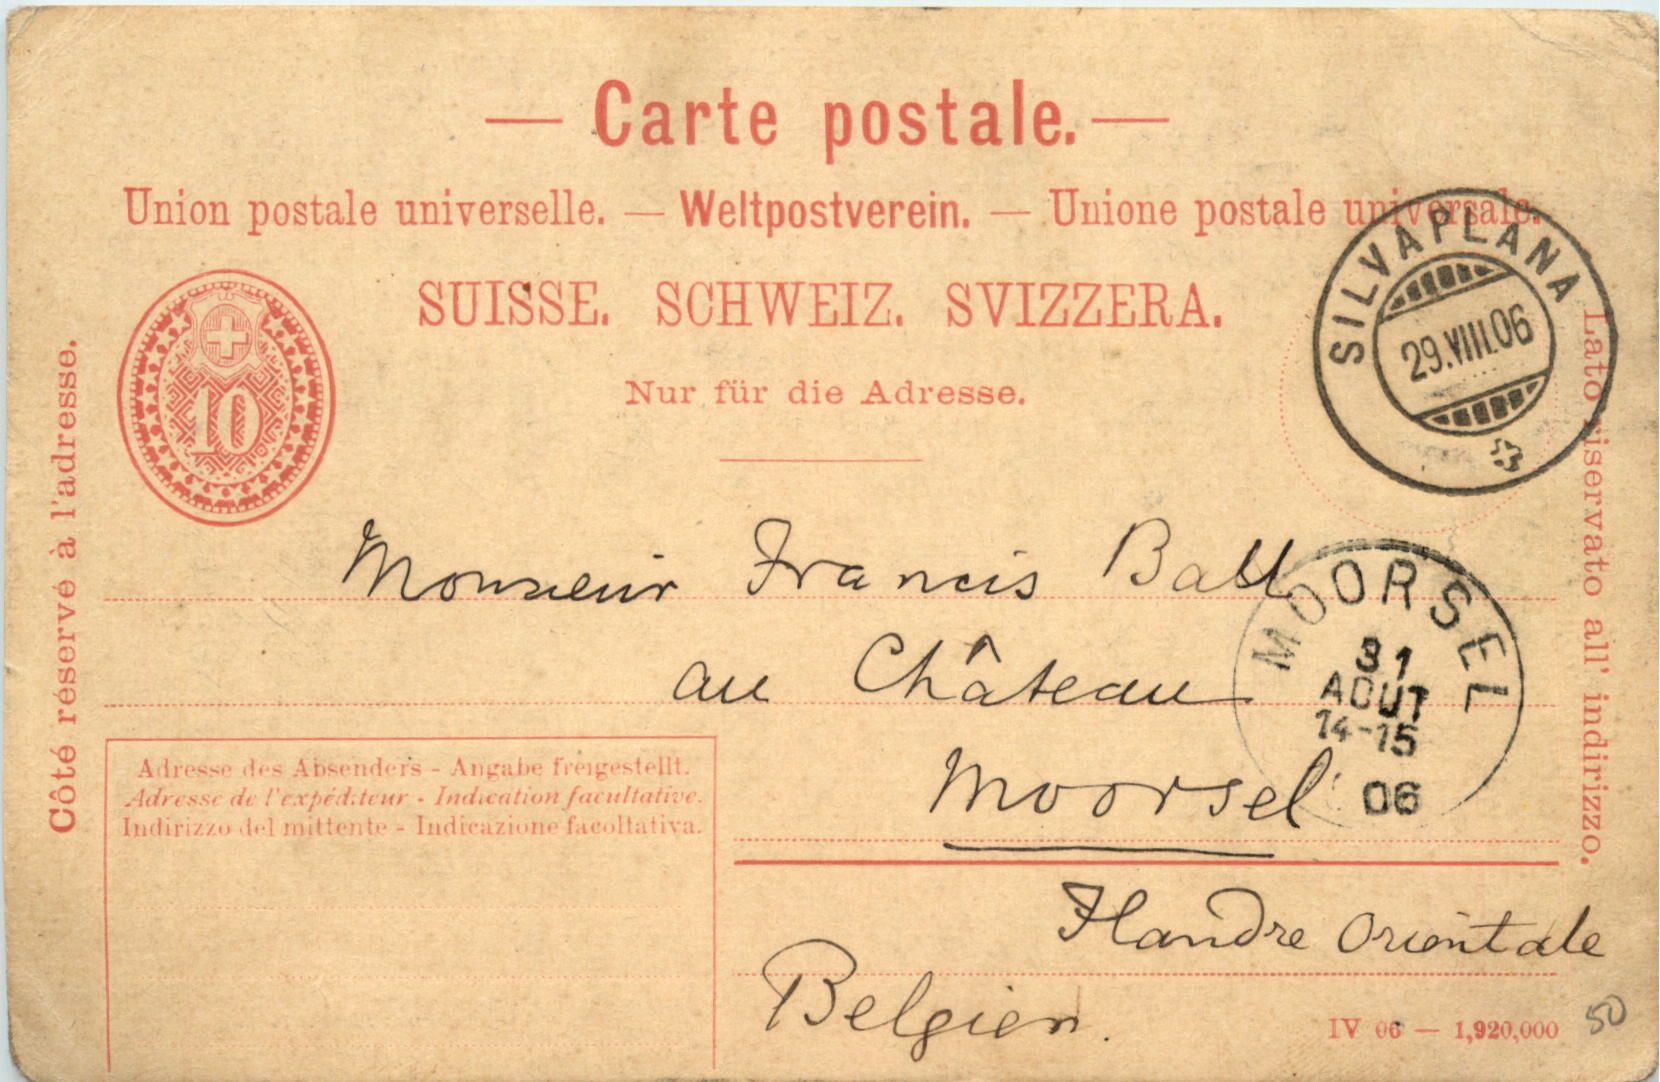 Carte postale.
Union postale universelle. — Weltpostverein. — Unione postale universale.
SUISSE. SCHWEIZ. SVIZZERA.
Nur für die Adresse.
10
SILVAPLANA
29.VIII.06
Côté réservé à l'adresse.
Lato riservato all' indirizzo.
Monsieur Francis Ball
au Château
Moorsel
MOORSEL
31
AOUT
14-15
06
Adresse des Absenders - Angabe freigestellt.
Adresse de l'expéditeur - Indication facultative.
Indirizzo del mittente - Indicazione facoltativa.
Flandre Orientale
Belgien.
IV 06 — 1,920,000
50